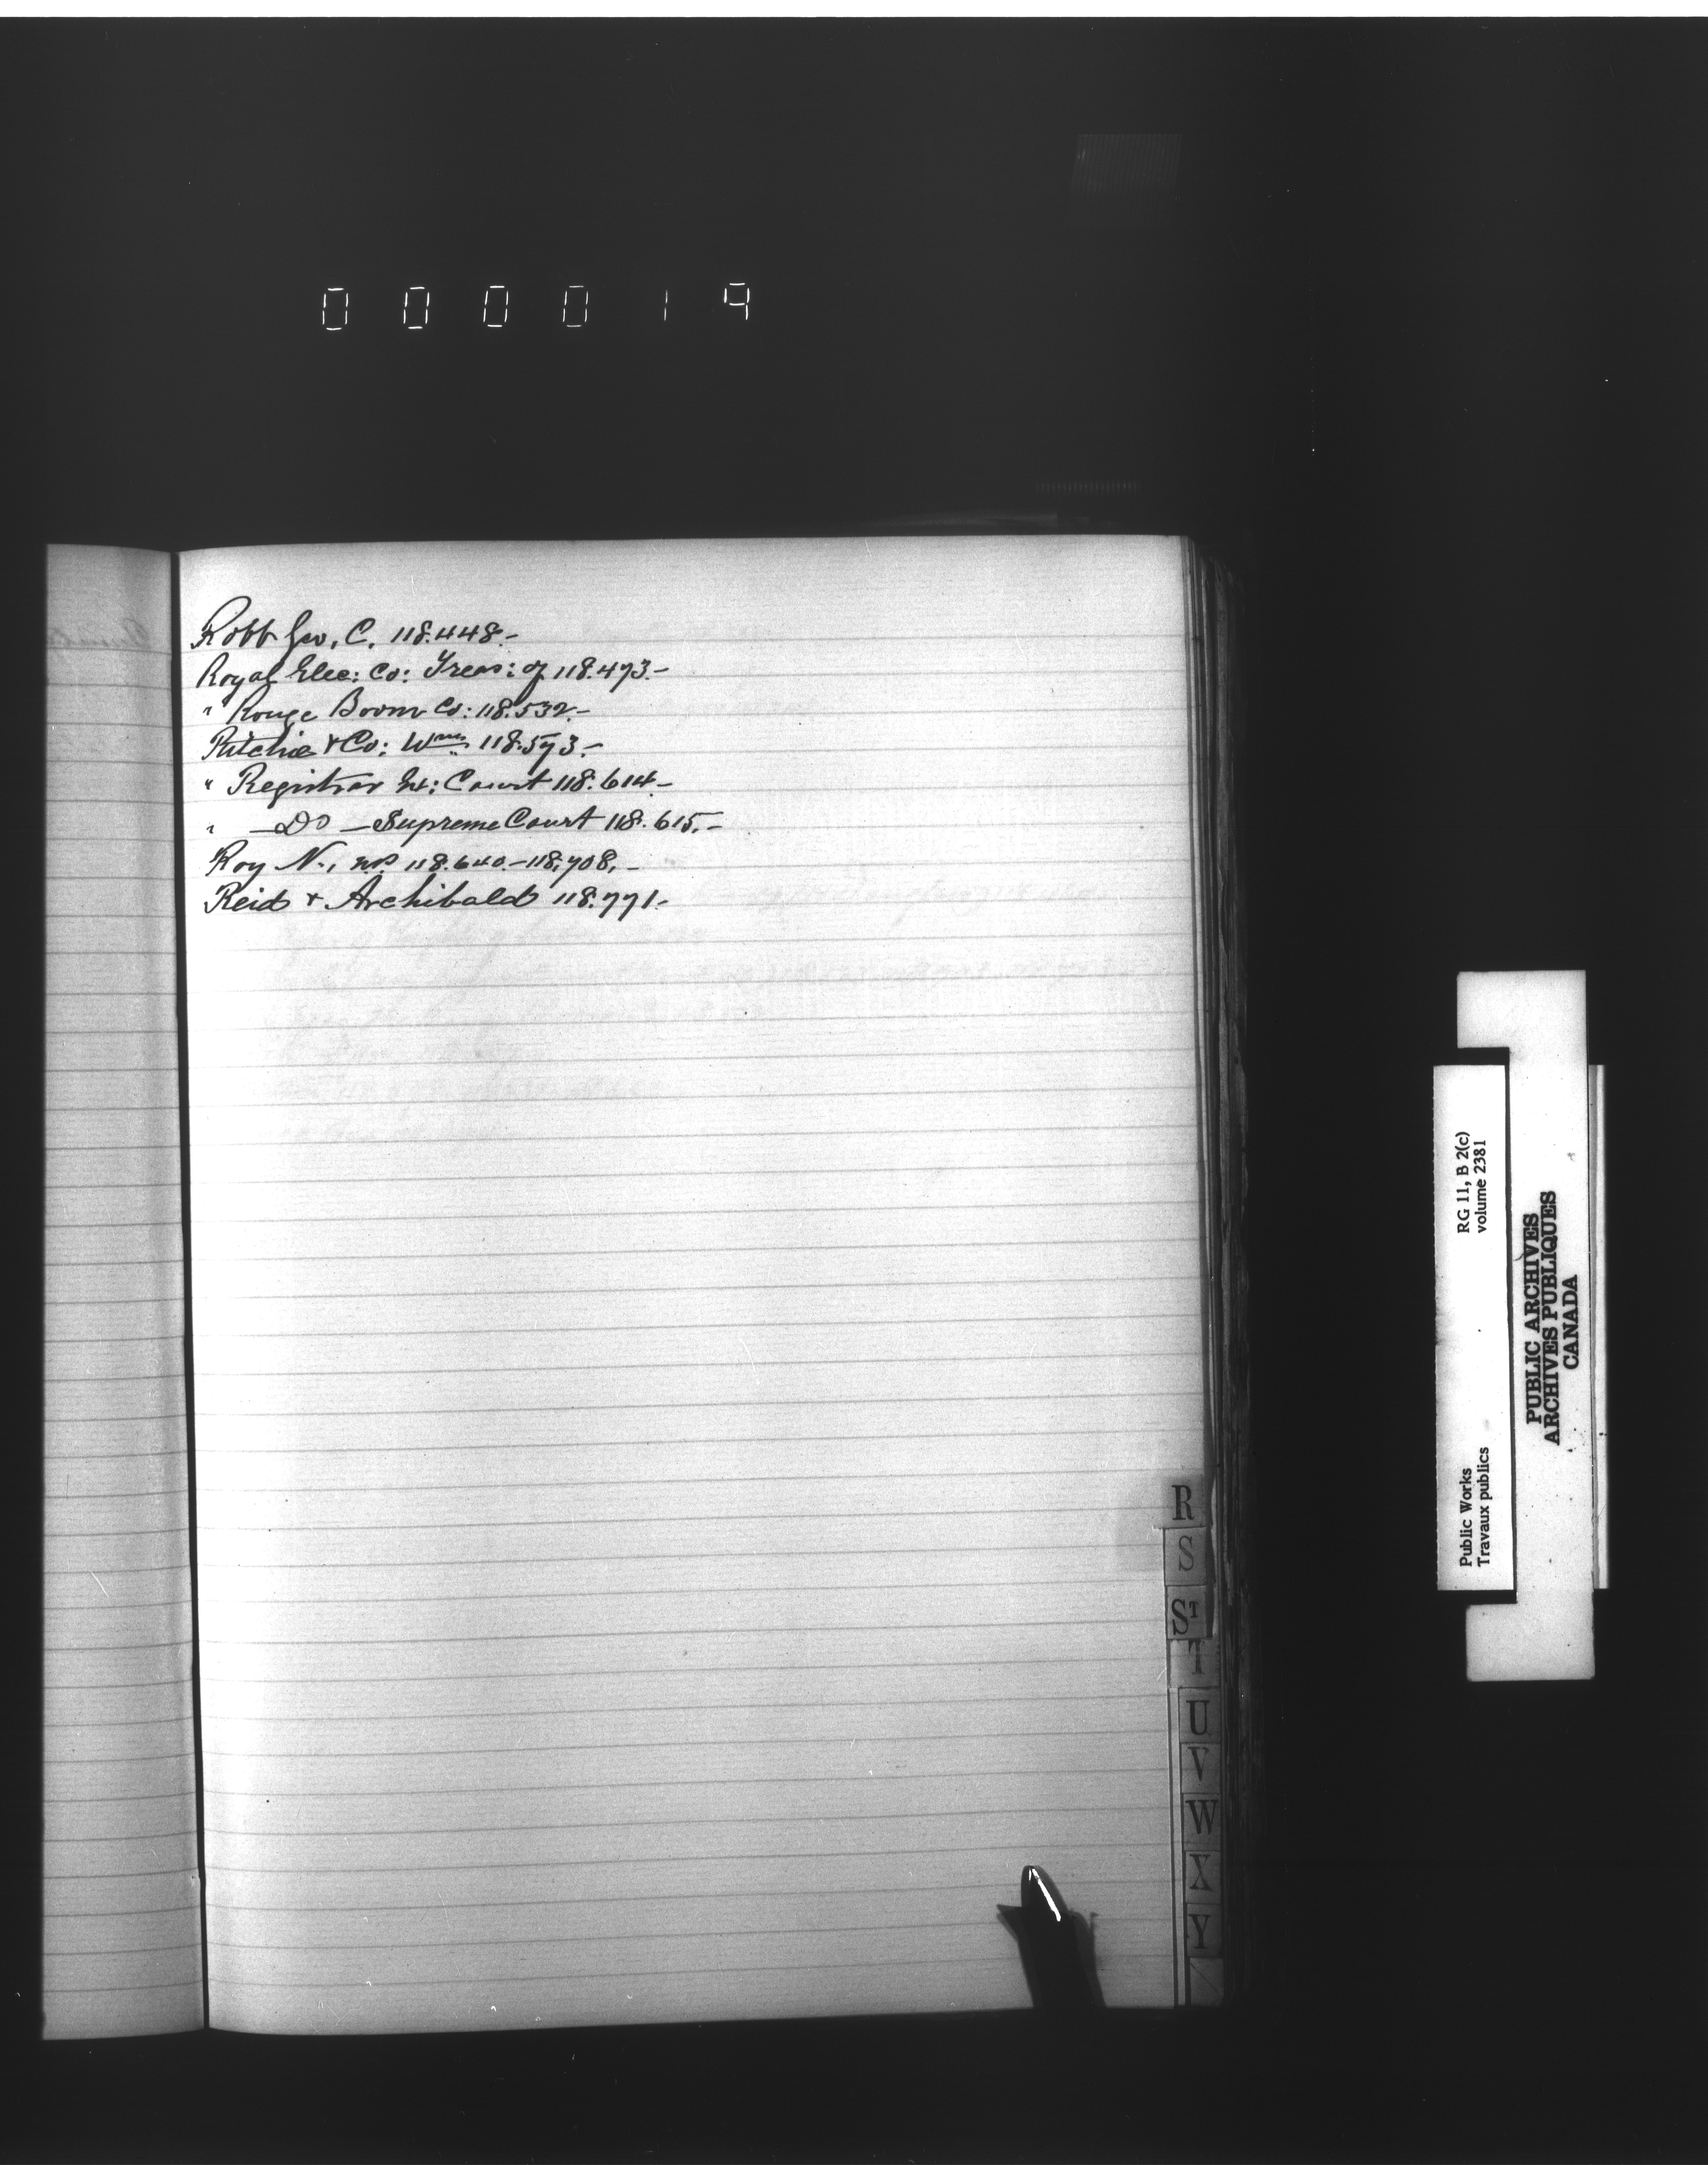 000019
Robb Geo. C. 118.448.-
Royal Elec: Co: Treas: of 118.473.-
" Rouge Boom Co: 118.532.-
Ritchie & Co: Wm 118.573.-
" Registrar Ex: Court 118.614.-
" -Do- Supreme Court 118.615.-
Roy N., nos 118.640.-118,708.-
Reid & Archibald 118.771.-
R
S
ST
T
U
V
W
X
Y
Public Works
Travaux publics
RG 11, B 2(c)
volume 2381
PUBLIC ARCHIVES
ARCHIVES PUBLIQUES
CANADA